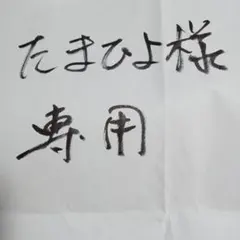 たまひよ様
専用